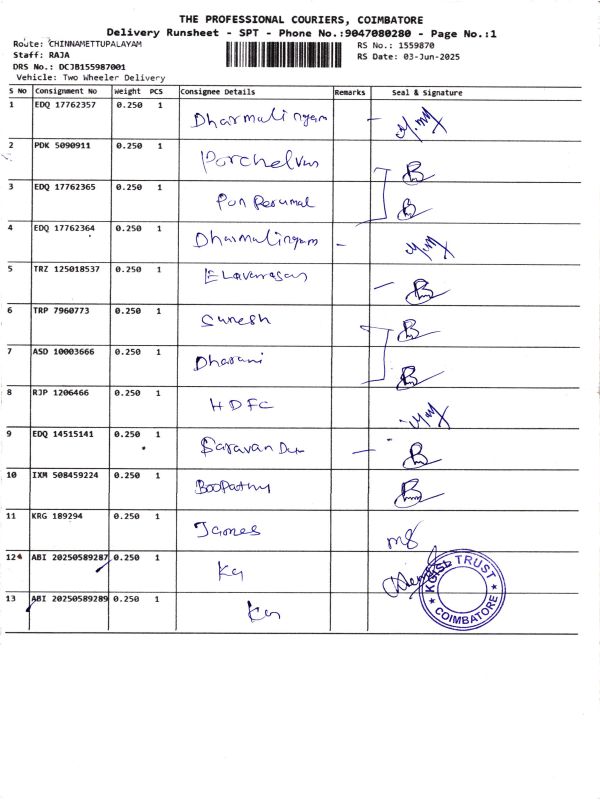 THE PROFESSIONAL COURIERS, COIMBATORE
Delivery Runsheet - SPT - Phone No.:9047080280 - Page No.:1
Route: CHINNAMETTUPALAYAM
Staff: RAJA
DRS No.: DCJB155987001
Vehicle: Two Wheeler Delivery
RS No.: 1559870
RS Date: 03-Jun-2025
S No Consignment No Weight PCS Consignee Details Remarks Seal & Signature
1 EDQ 17762357 0.250 1 Dharmalingam
2 PDK 5090911 0.250 1 Porchelvan
3 EDQ 17762365 0.250 1 Pon Perumal
4 EDQ 17762364 0.250 1 Dharmalingam
5 TRZ 125018537 0.250 1 Elavarasan
6 TRP 7960773 0.250 1 Suresh
7 ASD 10003666 0.250 1 Dharani
8 RJP 1206466 0.250 1 HDFC
9 EDQ 14515141 0.250 1 Saravan
10 IXM 508459224 0.250 1 Boopathy
11 KRG 189294 0.250 1 James
12 ABI 20250589287 0.250 1 Kg
13 ABI 20250589289 0.250 1
KGISL TRUST
COIMBATORE